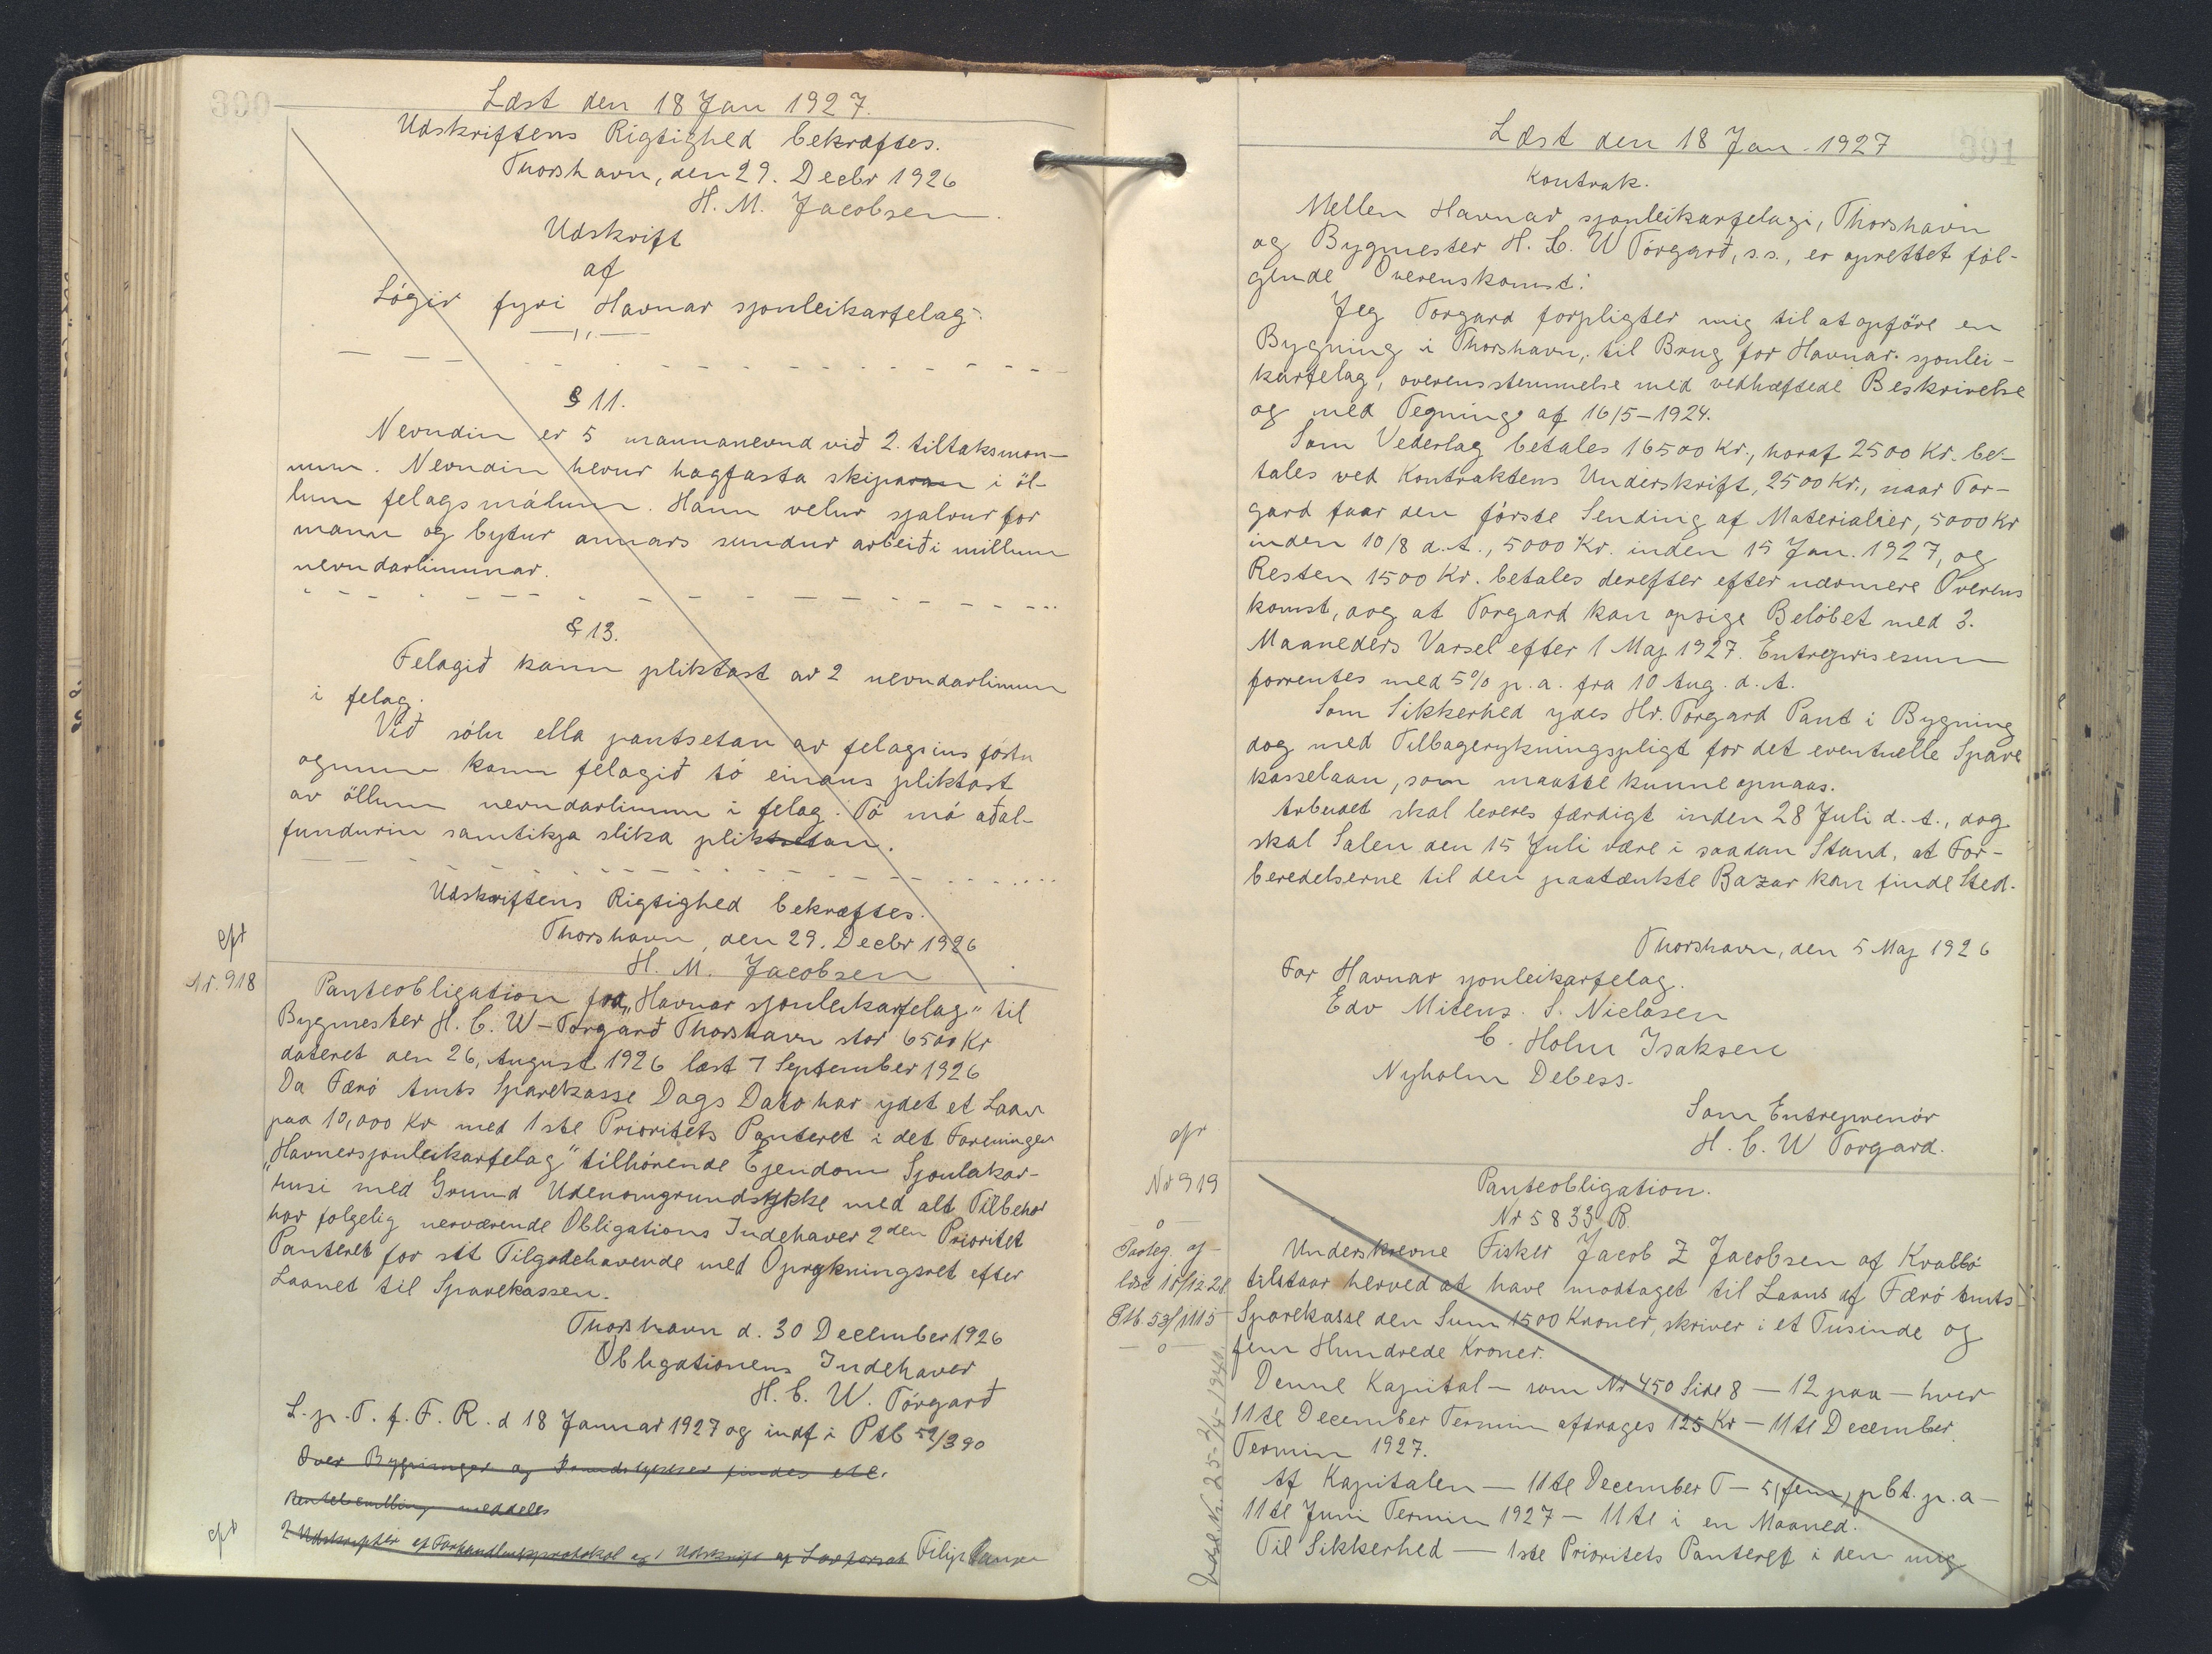 390
Læst den 18 Jan 1927.
Udskriftens Rigtighed bekræftes.
Thorshavn, den 29. Decbr 1926
H. M. Jacobsen.
Udskrift
af
Lógir fyri Havnar sjonleikarfelag.
§ 11.
Nevndin er 5 mannanevnd við 2. tiltaksmon-
num. Nevndin hevur hagfasta skipa i öl-
lum felagsmálum. Hann velur sjalvur for
mann og bytur annars sundur arbeiði millum
nevndarlimunar.
§ 13.
Felagið kann pliktast av 2 nevndarlimum
i felag.
Við sölu ella pantsetan av felagsins föstu
ognum kann felagið tó einans pliktast
av öllum nevndarlimum i felag. Tó má aðal-
fundurin samtikja slika pliktsetan.
Udskriftens Rigtighed bekræftes.
Thorshavn, den 29. Decbr 1926
H. M. Jacobsen
Nr. 918
Panteobligation fra „Havnar sjonleikarfelag" til
Bygmester H. C. W-Torgarð Thorshavn stor 6500 Kr
dateret den 26, August 1926 læst 7 September 1926
Da Færö Amts Sparekasse Dags Dato har ydet et Laan
paa 10,000 Kr med 1ste Prioritets Panteret i det Foreningen
"Havnersjonleikarfelag" tilhörende Ejendom Sjonlakar-
husi med Grund Udenomgrundstykke med alt Tilbehör
har folgelig nerværende Obligations Indehaver 2den Prioritet
Panteret for sit Tilgodehavende med Oprykningsret efter
Laanet til Sparekassen.
Thorshavn d. 30 December 1926
Obligationens Indehaver
H. C. W. Tórgarð
L. p. T. f. F. R. d 18 Januar 1927 og indf i Ptb 52/390
Over Bygninger og findes ete.
meddeles
2 Udskrifter af Forhandlingsprotokol og 1 Udskrift af Filip Hansen
391
Læst den 18 Jan. 1927
Kontrak.
Mellem Havnar sjonleikarfelagi, Thorshavn
og Bygmester H. C. W Tórgarð, s.s., er oprettet föl-
gende Overenskomst:
Jeg Torgard forpligter mig til at opföre en
Bygning i Thorshavn, til Brug for Havnar sjonlei-
karfelag, overensstemmelse med vedhæftede Beskrivelse
og med Tegning af 16/5-1924.
Som Vederlag betales 16500 Kr., horaf 2500 Kr. be-
tales ved Kontraktens Underskrift, 2500 Kr., naar Tor-
gard faar den förste Sending af Materialier, 5000 Kr
inden 10/8 d. A., 5000 Kr. inden 15 Jan. 1927, og
Resten 1500 Kr. betales derefter efter nærmere Overens
komst, dog at Torgard kan opsige Belöbet med 3.
Maaneders Varsel efter 1 Maj 1927. Entreprisesum
forrentes med 5% p. a. fra 10 Aug. d. A.
Som Sikkerhed ydes Hr. Torgard Pant i Bygning
dog med Tilbagerykningspligt for det eventuelle Spare
kasselaan, som maatte kunne opnaas.
Arbeidet skal leveres færdigt inden 28 Juli d. A., dog
skal Salen den 15 Juli være i saadan Stand, at For-
beredelserne til den paatænkte Bazar kan finde Sted.
Thorshavn, den 5 Maj 1926
For Havnar sjonleikarfelag.
Edv Mitens. S. Nielasen
C. Holm Isaksen
Nyholm Debess.
Som Entreprenör
H. C. W Torgard.
Nr 919
Panteobligation.
Nr 5833 B.
Underskrevne Fisker Jacob Z Jacobsen af Kvalbö
tilstaar herved at have modtaget til Laans af Færö Amts
Sparekasse den Sum 1500 Kroner, skriver i et Tusinde og
fem Hundrede Kroner.
Denne Kapital - som Nr 450 Side 8 - 12 paa - hver
11te December Termin afdrages 125 Kr - 11te December
Termin 1927.
Af Kapitalen - 11te December T - 5, fem, pCt. p. a -
11te Juni Termin 1927 - 11te i en Maaned.
Til Sikkerhed - 1ste Prioritets Panteret i den mig
læst 18/12-28
Ptb. 53/1115